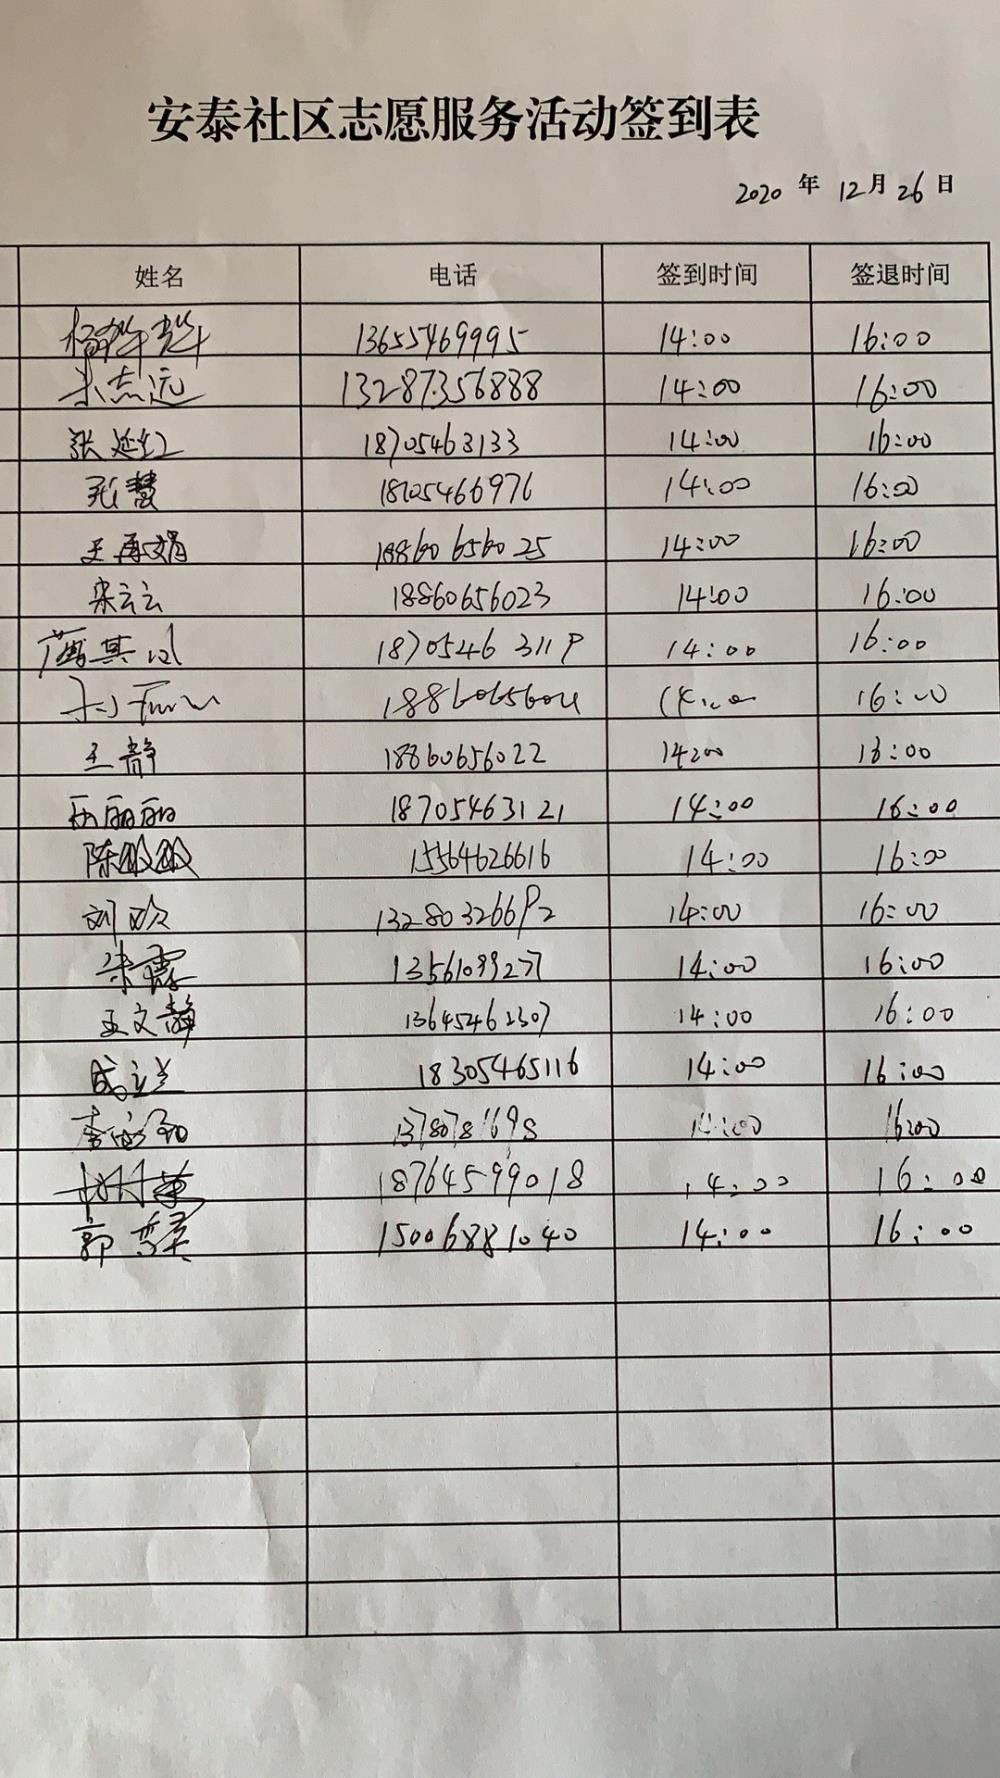 安泰社区志愿服务活动签到表
2020 年 12 月 26 日
姓名 电话 签到时间 签退时间
13655469995 14:00 16:00
朱志远 13287356888 14:00 16:00
张延红 18705463133 14:00 16:00
张慧 18705466976 14:00 16:00
王再娟 18860656025 14:00 16:00
宋云云 18860656023 14:00 16:00
18705463119 14:00 16:00
16:00
王静 18860656022 14:00 16:00
丽丽 18705463121 14:00 16:00
陈姣姣 15564626616 14:00 16:00
刘欢 13280326692 14:00 16:00
朱霞 14:00 16:00
王文静 13645462307 14:00 16:00
成立兰 18305465116 14:00 16:00
14:00 16:00
18764599018 14:00 16:00
郭 15006881040 14:00 16:00